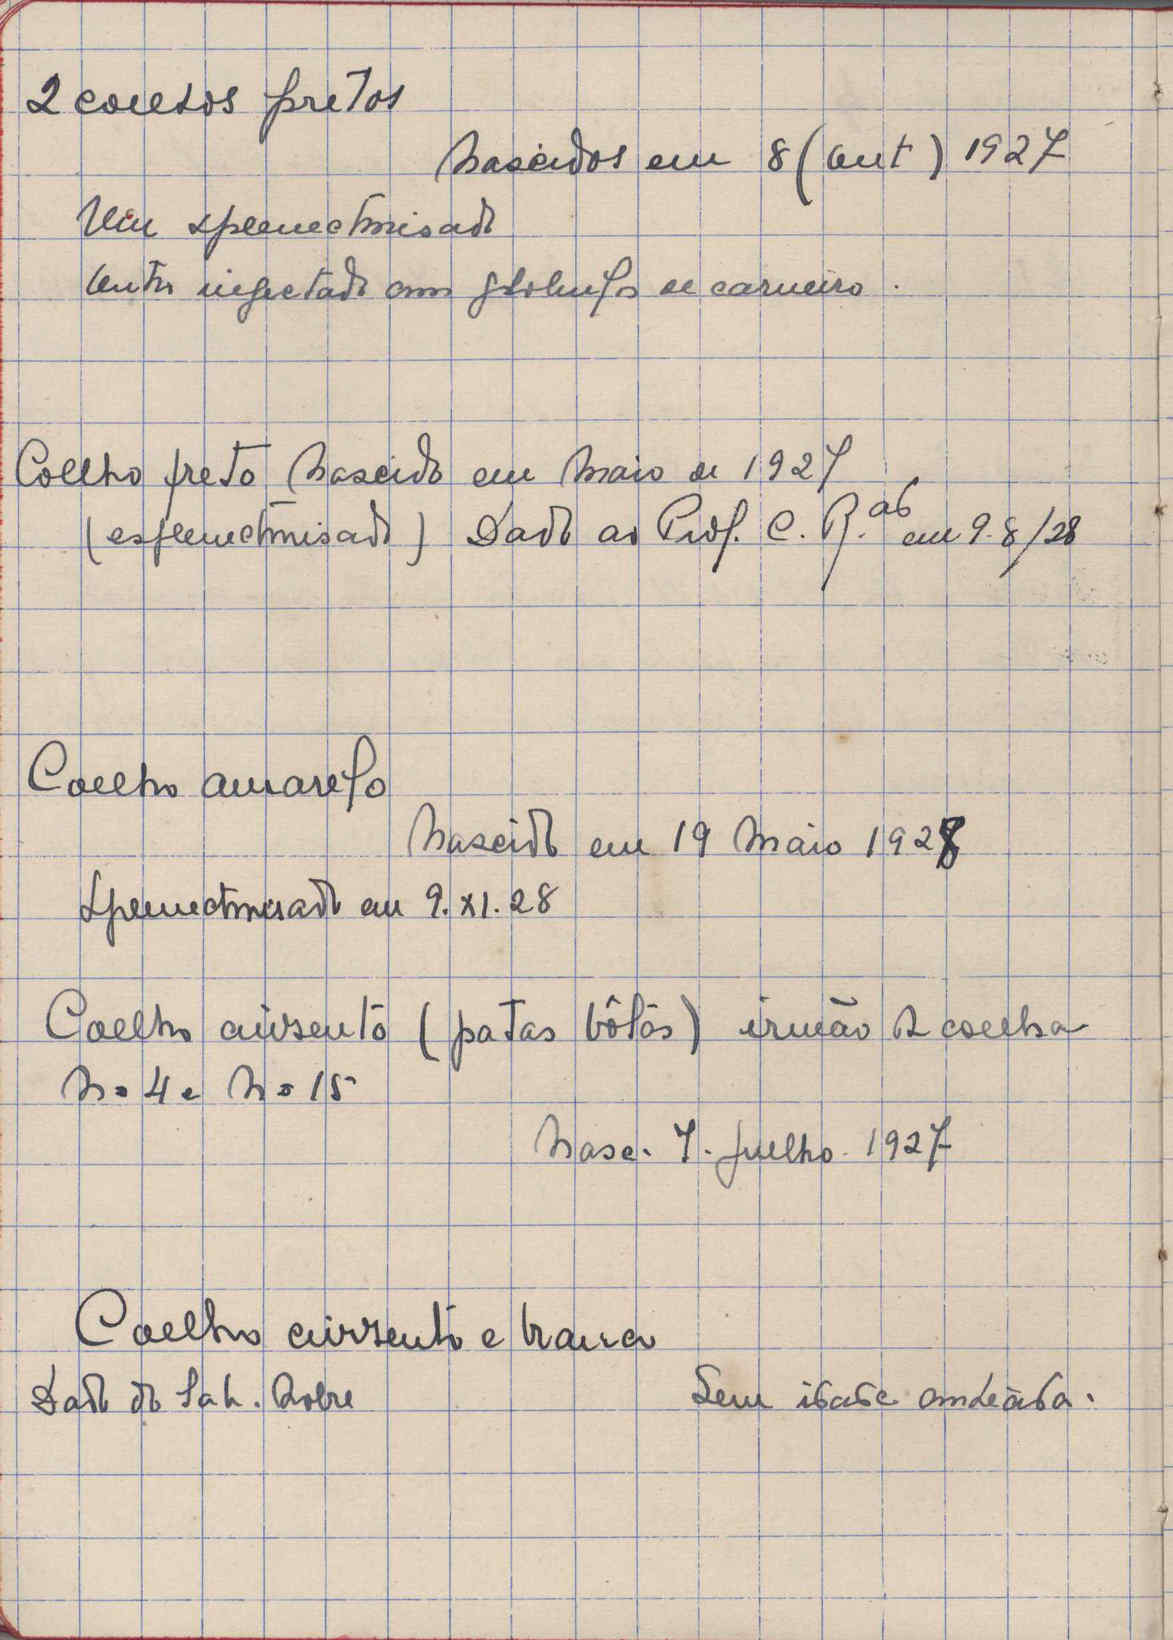 2 coelhos pretos
nascidos em 8 (Out) 1927
Um splenectomisado
Outro injectado com globulos de carneiro.
Coelho preto nascido em Maio de 1927
(esplenectomisado) Dado ao Prof. C. em 9.8/28
Coelho amarelo
nascido em 19 Maio 1928
Splenectomisado em 9.XI.28
Coelho cinzento (patas bôtas) irmão da coelha
nº 4 e nº 15
Nasc. 7. Julho. 1927
Coelho cinzento e branco
Dado do Lab. Nobre
Sem idade conhecida.